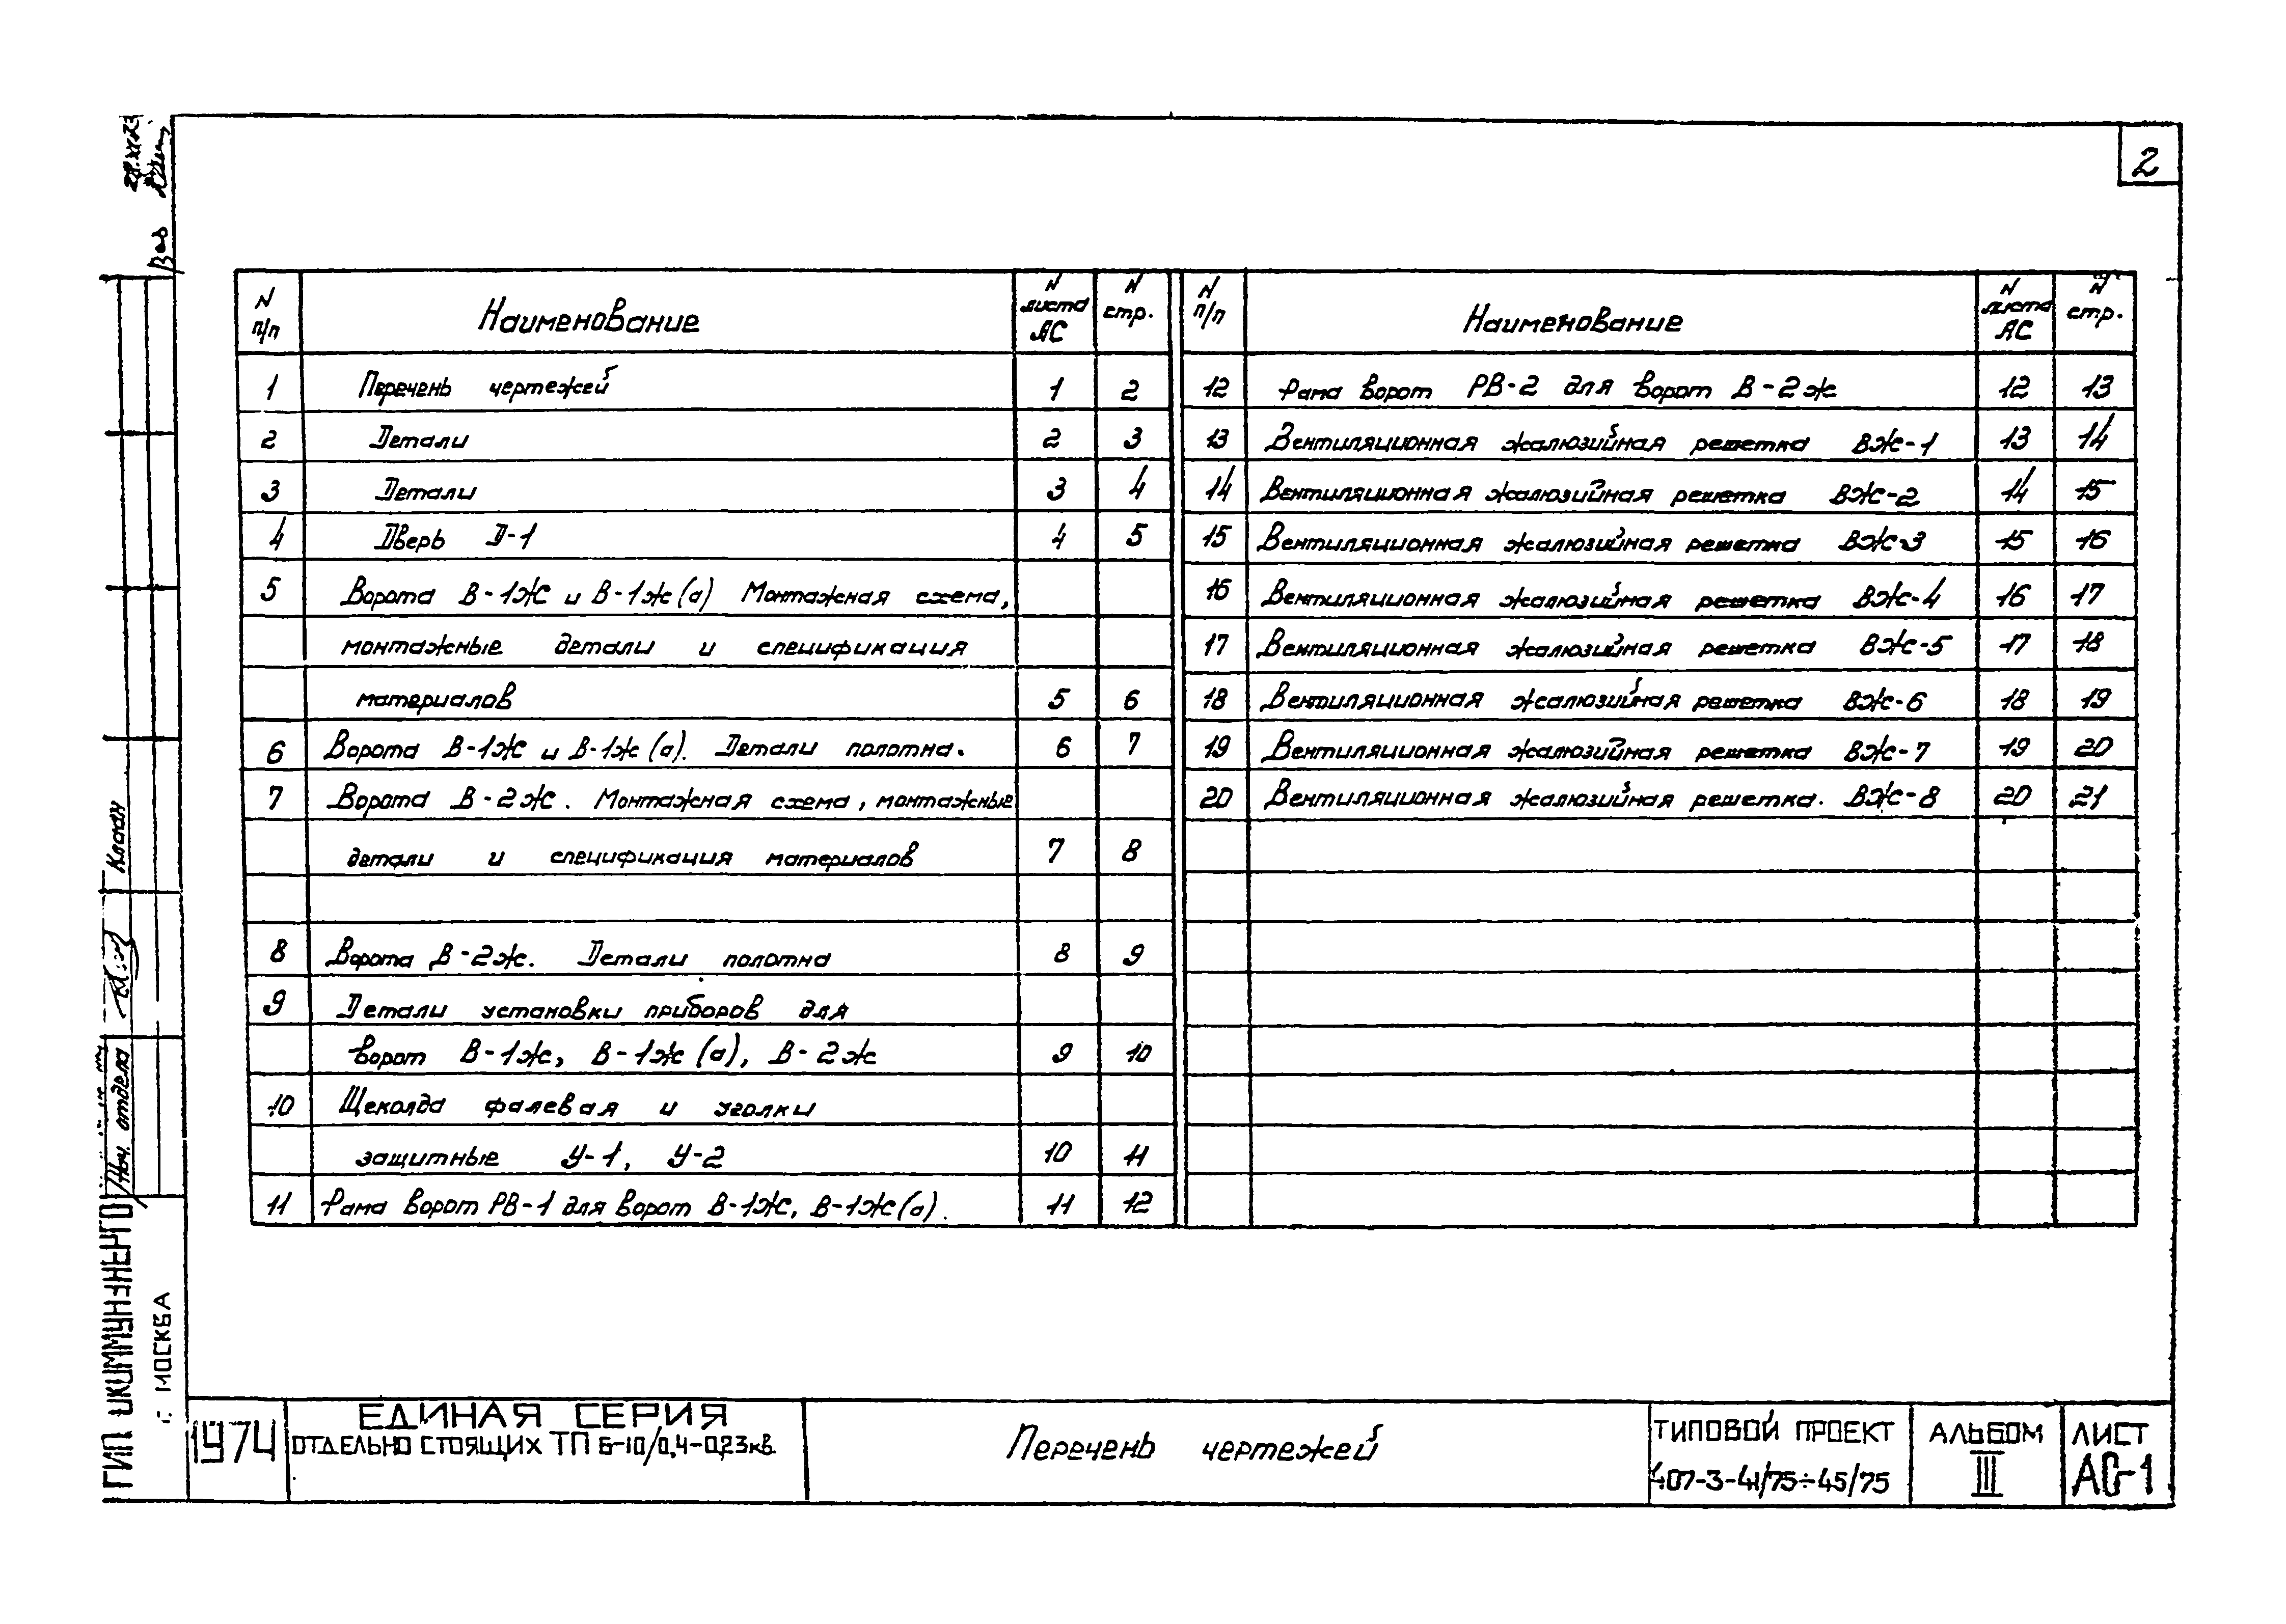 2
N п/п Наименование N листа АС N стр.
1 Перечень чертежей 1 2
2 Детали 2 3
3 Детали 3 4
4 Дверь Д-1 4 5
5 Ворота В-1Ж и В-1Ж(а) Монтажная схема,
монтажные детали и спецификация
материалов 5 6
6 Ворота В-1Ж и В-1Ж(а). Детали полотна. 6 7
7 Ворота В-2Ж. Монтажная схема, монтажные
детали и спецификация материалов 7 8
8 Ворота В-2Ж. Детали полотна 8 9
9 Детали установки приборов для
ворот В-1Ж, В-1Ж(а), В-2Ж 9 10
10 Щеколда фалевая и уголки
защитные У-1, У-2 10 11
11 Рама ворот РВ-1 для ворот В-1Ж, В-1Ж(а). 11 12
N п/п Наименование N листа АС N стр.
12 Рама ворот РВ-2 для ворот В-2Ж 12 13
13 Вентиляционная жалюзийная решетка ВЖ-1 13 14
14 Вентиляционная жалюзийная решетка ВЖ-2 14 15
15 Вентиляционная жалюзийная решетка ВЖ-3 15 16
16 Вентиляционная жалюзийная решетка ВЖ-4 16 17
17 Вентиляционная жалюзийная решетка ВЖ-5 17 18
18 Вентиляционная жалюзийная решетка ВЖ-6 18 19
19 Вентиляционная жалюзийная решетка ВЖ-7 19 20
20 Вентиляционная жалюзийная решетка. ВЖ-8 20 21
Нач. отдела Клаан
г. МОСКВА
1974
ЕДИНАЯ СЕРИЯ
ОТДЕЛЬНО СТОЯЩИХ ТП 6-10/0,4-0,23кв.
Перечень чертежей
ТИПОВОЙ ПРОЕКТ
407-3-41/75÷45/75
АЛЬБОМ
III
ЛИСТ
АС-1